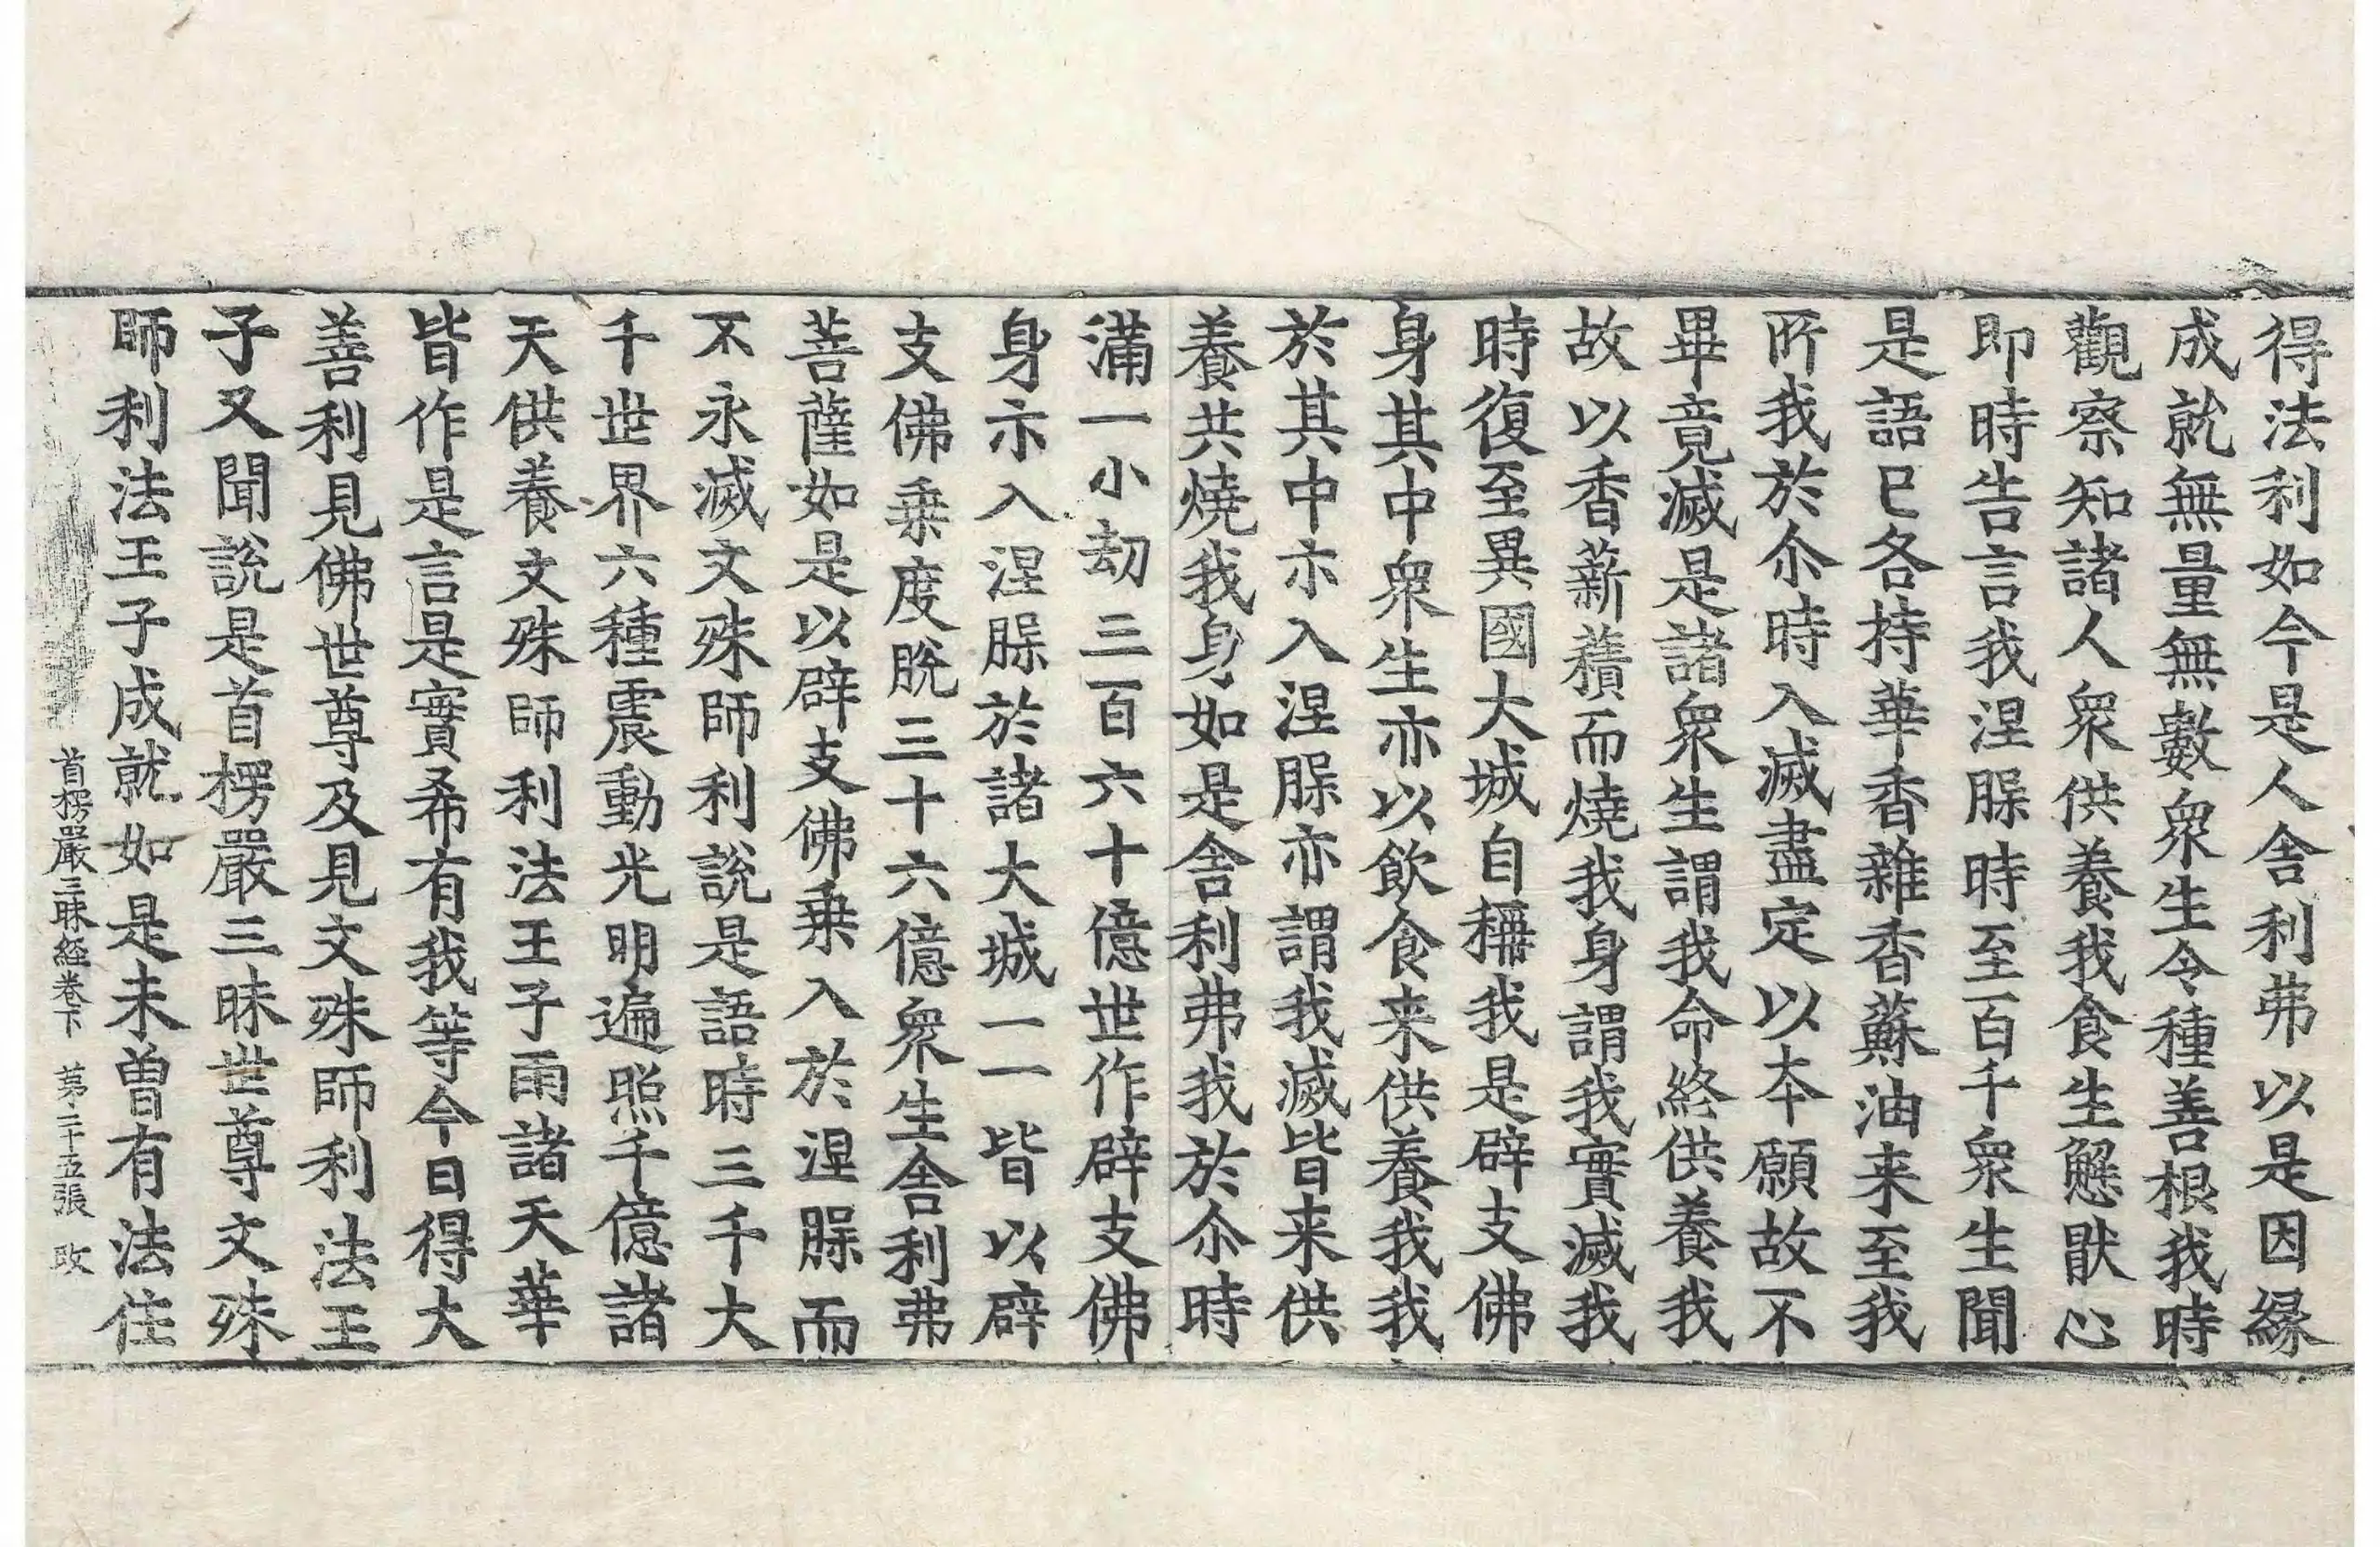 得法利如今是人舍利弗以是因緣
成就無量無數衆生令種善根我時
觀察知諸人衆供養我食生懈猒心
即時告言我涅脲時至百千衆生聞
是語已各持華香香雜香蘇油来至我
所我於尒時入滅盡定以夲願故不
畢竟滅是諸衆生謂我命終供養我
故以香薪𧂐而燒我身謂我實滅我
時復至異國大城自稱我是辟支佛
身其中衆生亦以飲食来供養我我
於其中示入涅脲亦謂我滅皆来供
養共燒我身如是舍利弗我於尒時
滿一小劫三百六十億世作辟支佛
身示入涅脲於諸大城一一皆以辟
支佛乗度脫三十六億衆生舍利弗
菩薩如是以辟支佛乗入於涅脲而
不永滅文殊師利說是語時三千大
千世界六種震動光明遍照千億諸
天供養文殊師利法王子雨諸天華
皆作是言是實希有我等今日得大
善利見佛世尊及見文殊師利法王
子又聞說是首楞嚴三昧世尊文殊
師利法王子成就如是未曽有法住
首楞嚴三昧経卷下 苐二十五張 㪅